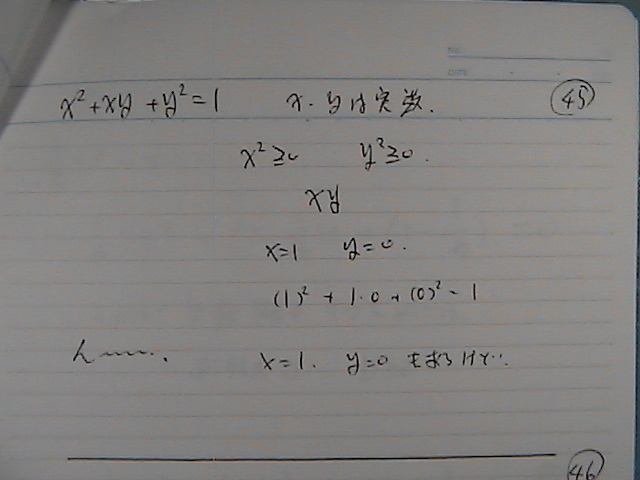 NO.
DATE
x²+xy+y²=1 x・yは実数. ㊺
x²≧0 y²≧0.
xy
x=1 y=0.
(1)²+1・0+(0)²=1
hmm.. x=1. y=0 もあるけど…
㊻